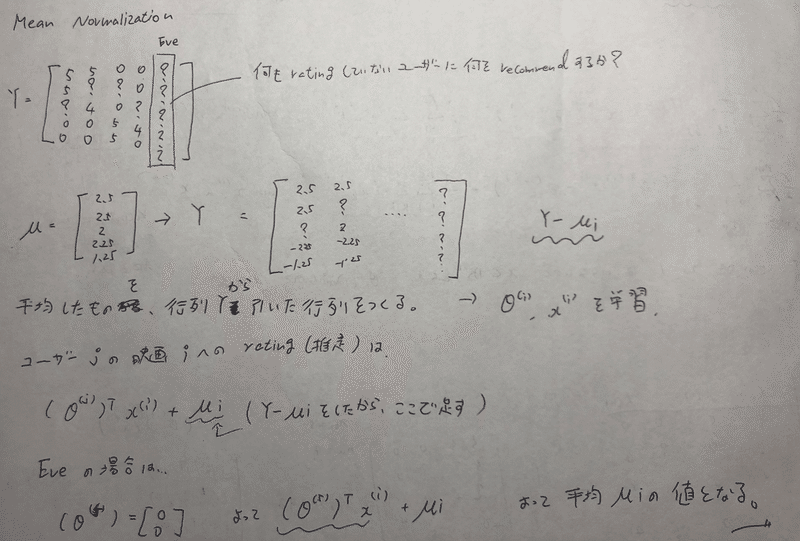 Mean Normalization
Eve
Y = [ 5 5 0 0 ?
5 ? ? 0 ?
? 4 0 ? ?
0 0 5 4 ?
0 0 5 0 ? ]
?
何も rating していない ユーザーに 何を recommend するか?
μ = [ 2.5
2.5
2
2.25
1.25 ] → Y = [ 2.5 2.5 ?
2.5 ? ‥‥ ?
? 2 ?
-2.25 -2.25 ?
-1.25 -1.25 ] Y - μi
平均したものを、行列 Yから引いた行列をつくる。 → θ⁽ʲ⁾, x⁽ⁱ⁾ を学習.
ユーザー j の 映画 i への rating (推定) は.
(θ⁽ʲ⁾)ᵀ x⁽ⁱ⁾ + μi (Y-μi をしたから、ここで足す)
Eve の場合は...
(θ⁽⁵⁾) = [ 0
0 ] よって (θ⁽⁵⁾)ᵀ x⁽ⁱ⁾ + μi よって 平均 μi の 値となる。